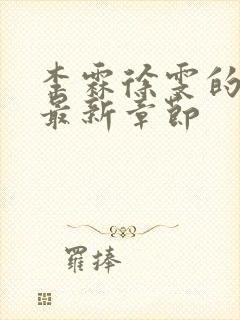 李霖徐雯的
最新章节
羅捧